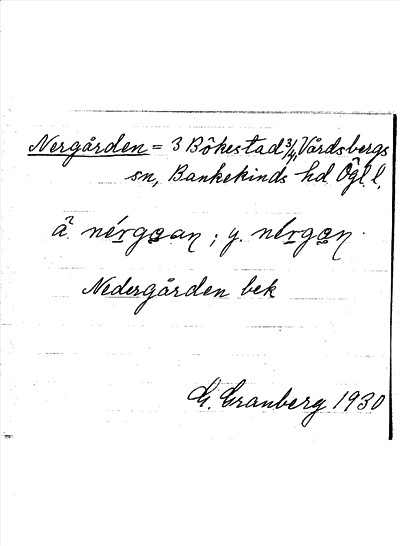 Nergården = 3 Bökestad 3/4, Vårdsbergs
sn, Bankekinds hd Ögl l,
ä. nérgɑan; y. nérgɑn.
Nedergården bek
G. Granberg 1930